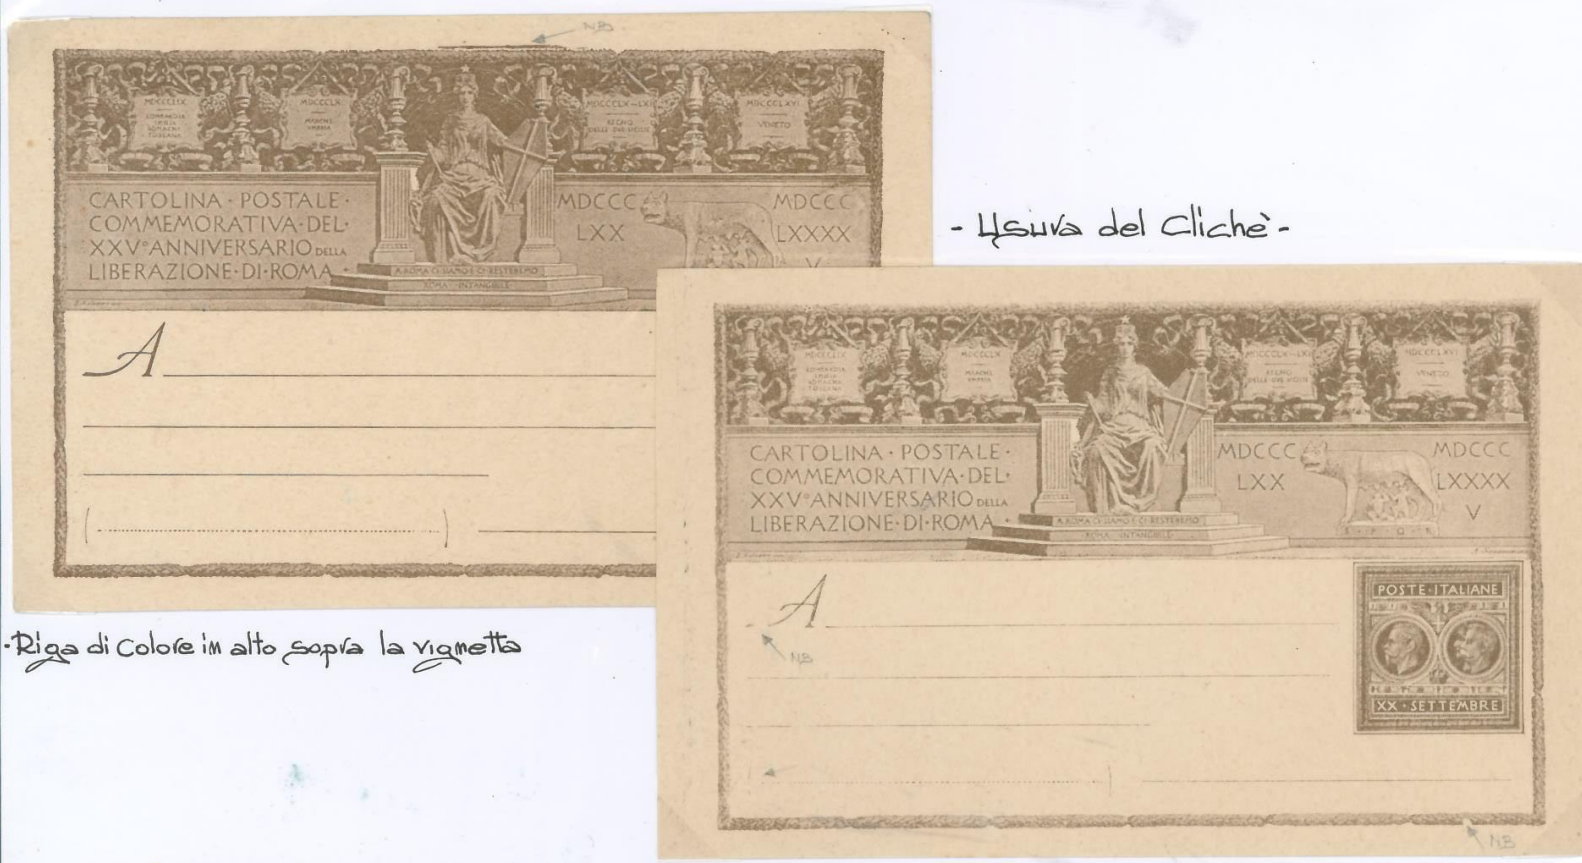 NB
MDCCCLIX
LOMBARDIA
EMILIA
ROMAGNA
TOSCANA
MDCCCLX
MARCHE
UMBRIA
MDCCCLX-LXI
REGNO
DELLE DUE SICILIE
MDCCCLXVI
VENETO
CARTOLINA · POSTALE ·
COMMEMORATIVA · DEL ·
XXV° ANNIVERSARIO DELLA
LIBERAZIONE · DI · ROMA ·
MDCCC
LXX
MDCCC
LXXXX
V
A ROMA CI SIAMO E CI RESTEREMO
ROMA INTANGIBILE
A
- Usura del Clichè -
· Riga di colore in alto sopra la vignetta
MDCCCLIX
LOMBARDIA
EMILIA
ROMAGNA
TOSCANA
MDCCCLX
MARCHE
UMBRIA
MDCCCLX-LXI
REGNO
DELLE DUE SICILIE
MDCCCLXVI
VENETO
CARTOLINA · POSTALE ·
COMMEMORATIVA · DEL ·
XXV° ANNIVERSARIO DELLA
LIBERAZIONE · DI · ROMA ·
MDCCC
LXX
MDCCC
LXXXX
V
A ROMA CI SIAMO E CI RESTEREMO
ROMA INTANGIBILE
S · P · Q · R
A
NB
POSTE · ITALIANE
XX · SETTEMBRE
NB